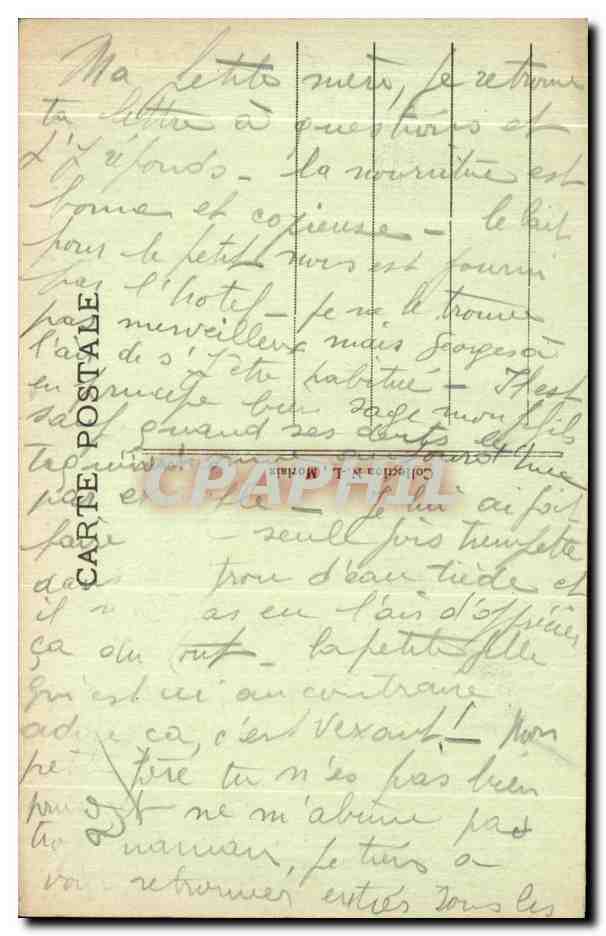 Ma petite mère, je retrouve
ta lettre à questions et
j'y réponds – la nourriture est
bonne et copieuse – le lait
pour le petit nous est fourni
par l'hôtel – je ne le trouve
pas merveilleux mais Georges a
l'air de s'y être habitué – Il est
en principe bien sage mon fils
sauf quand ses dents le
pas – je lui ai fait
faire seule fois trempette
dans d'eau tiède et
il as eu l'air d'apprécier
ça du tout – la petite fille
qui est ici au contraire
adore ça, c'est vexant! – Mon
père tu n'es pas bien
ne m'abime pas
maman, je tiens à
vous retrouver entiers tous les
CARTE POSTALE
Collection N. L., Morlaix
CPAPHIL